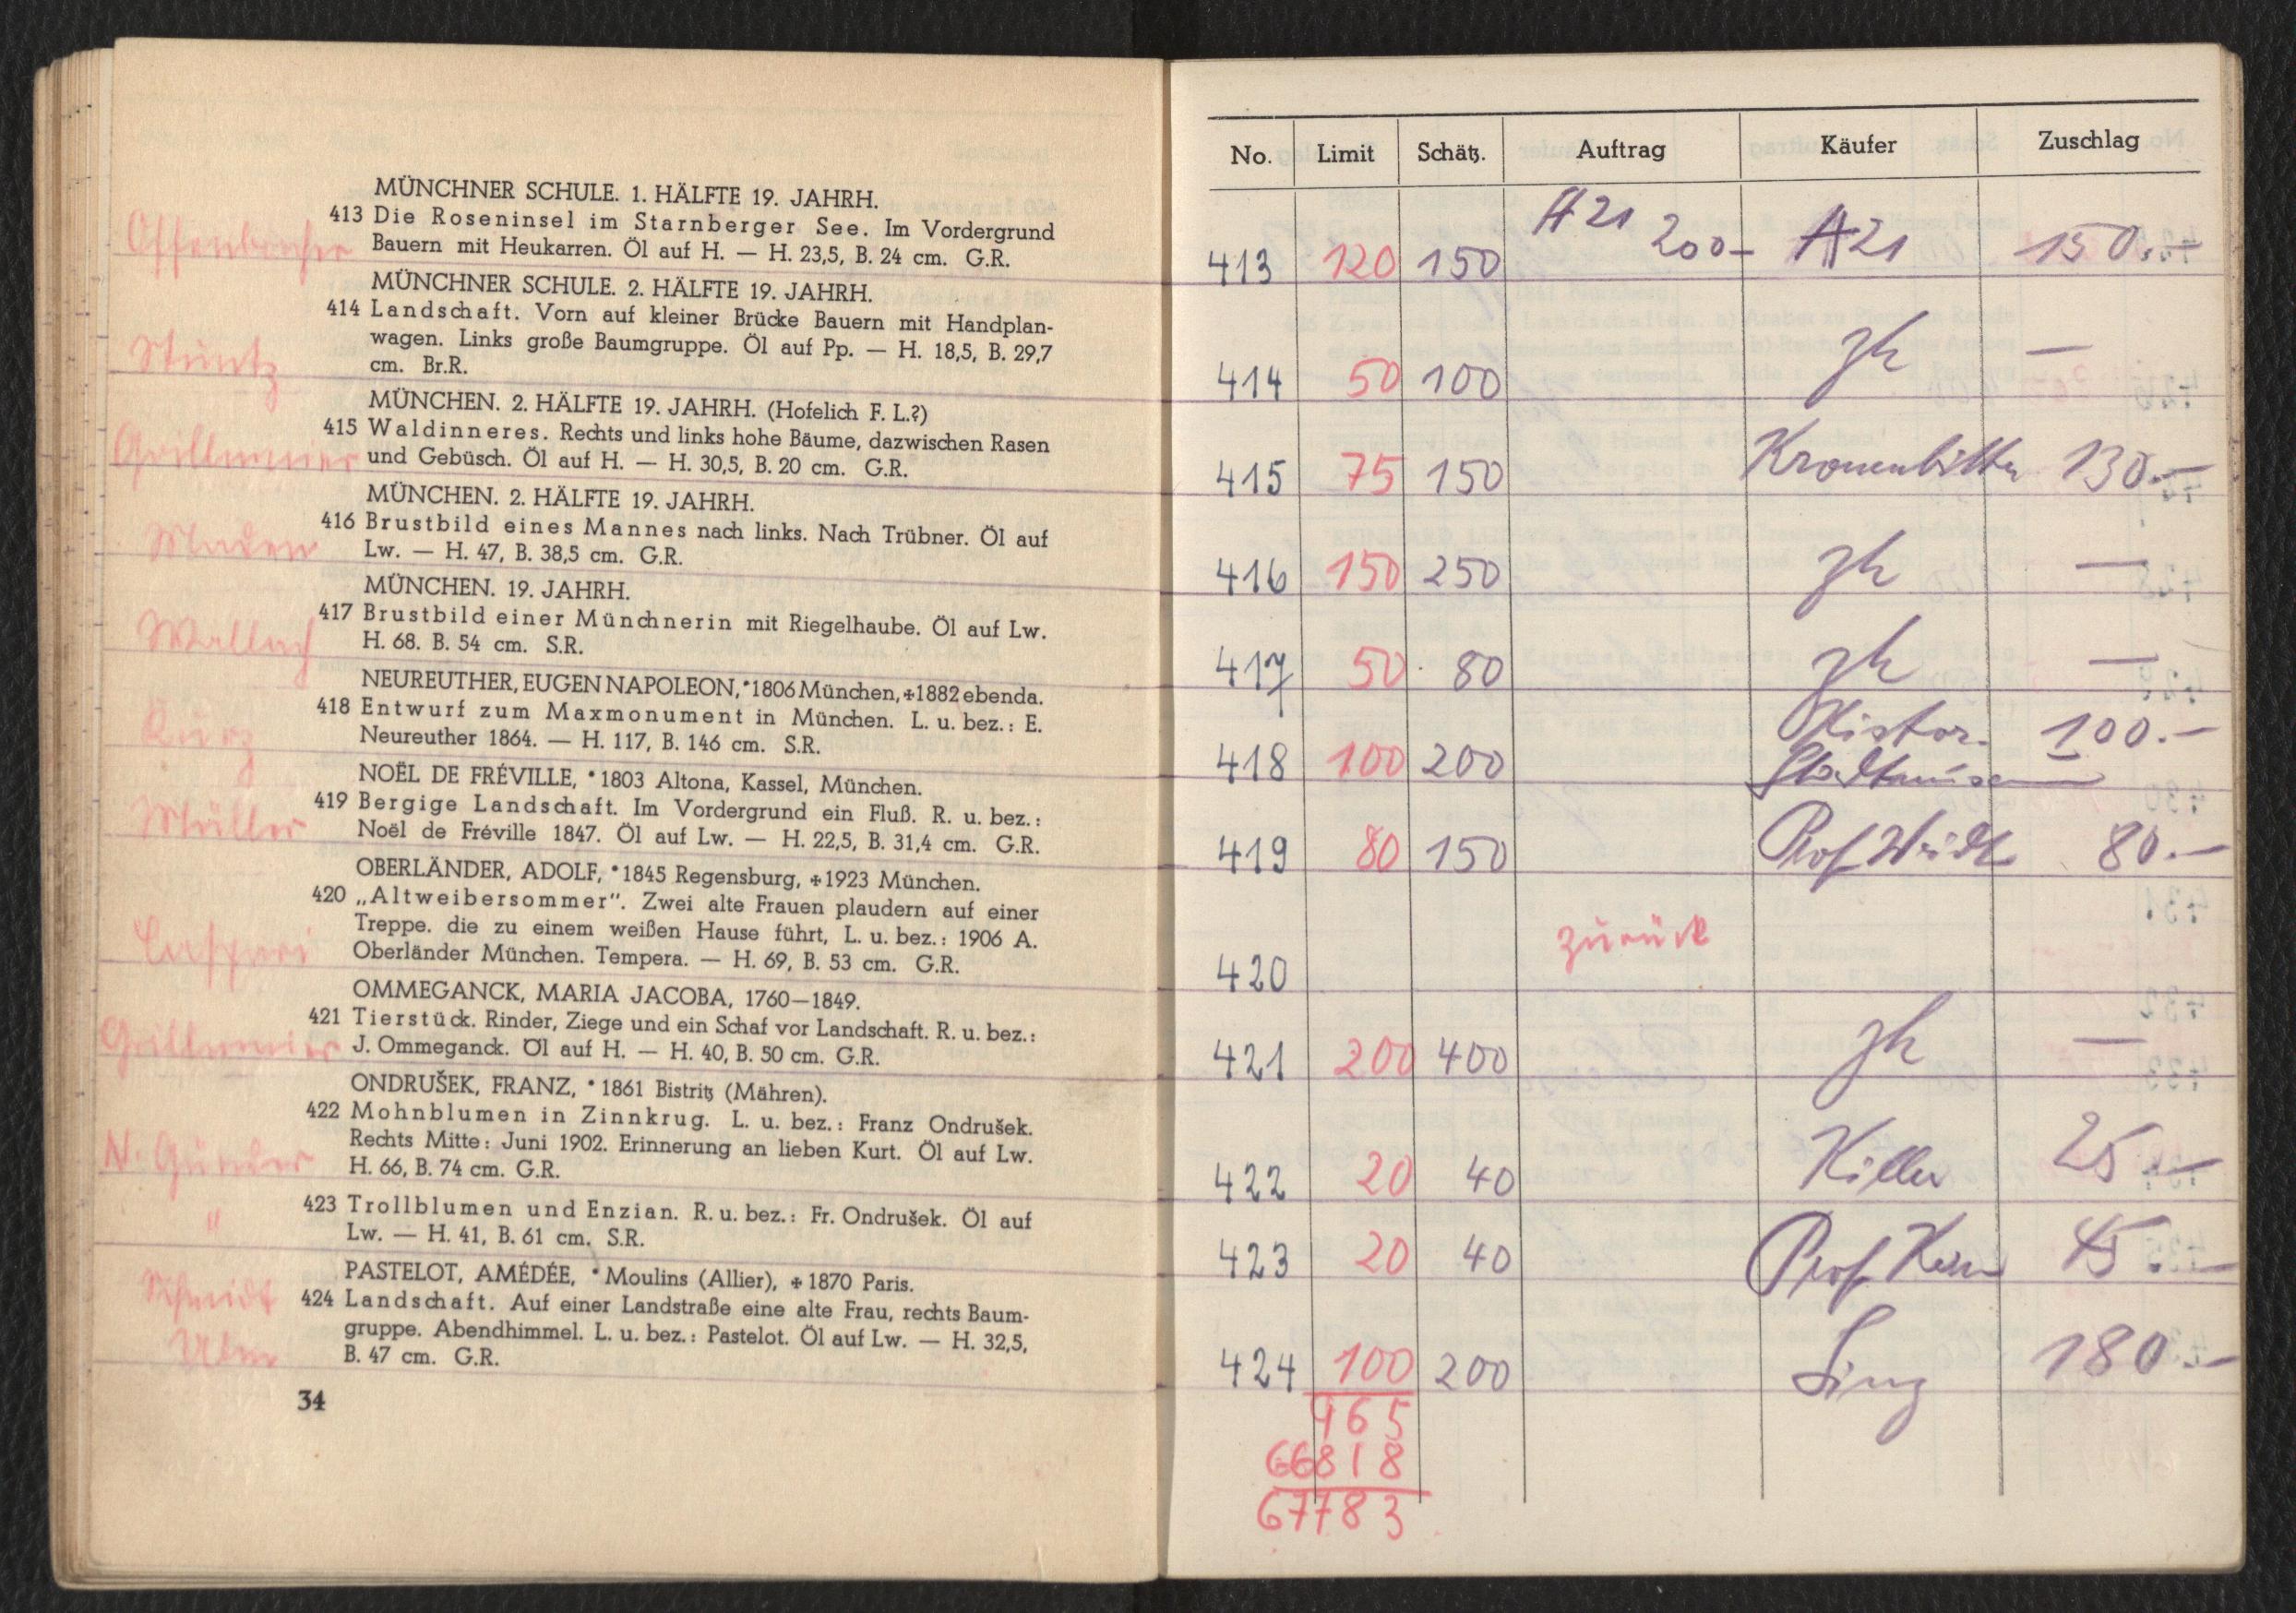 MÜNCHNER SCHULE. 1. HÄLFTE 19. JAHRH.
413 Die Roseninsel im Starnberger See. Im Vordergrund
Bauern mit Heukarren. Öl auf H. — H. 23,5, B. 24 cm. G.R.
MÜNCHNER SCHULE. 2. HÄLFTE 19. JAHRH.
414 Landschaft. Vorn auf kleiner Brücke Bauern mit Handplan-
wagen. Links große Baumgruppe. Öl auf Pp. — H. 18,5, B. 29,7
Stuntz
cm. Br.R.
MÜNCHEN. 2. HÄLFTE 19. JAHRH. (Hofelich F. L.?)
415 Waldinneres. Rechts und links hohe Bäume, dazwischen Rasen
Grillmeier
und Gebüsch. Öl auf H. — H. 30,5, B. 20 cm. G.R.
MÜNCHEN. 2. HÄLFTE 19. JAHRH.
416 Brustbild eines Mannes nach links. Nach Trübner. Öl auf
Lw. — H. 47, B. 38,5 cm. G.R.
MÜNCHEN. 19. JAHRH.
417 Brustbild einer Münchnerin mit Riegelhaube. Öl auf Lw.
Wallach
H. 68. B. 54 cm. S.R.
NEUREUTHER, EUGEN NAPOLEON, *1806 München, +1882 ebenda.
418 Entwurf zum Maxmonument in München. L. u. bez.: E.
Kurz
Neureuther 1864. — H. 117, B. 146 cm. S.R.
NOËL DE FRÉVILLE, *1803 Altona, Kassel, München.
419 Bergige Landschaft. Im Vordergrund ein Fluß. R. u. bez.:
Müller
Noël de Fréville 1847. Öl auf Lw. — H. 22,5, B. 31,4 cm. G.R.
OBERLÄNDER, ADOLF, *1845 Regensburg, +1923 München.
420 „Altweibersommer“. Zwei alte Frauen plaudern auf einer
Treppe. die zu einem weißen Hause führt, L. u. bez.: 1906 A.
Caspari
Oberländer München. Tempera. — H. 69, B. 53 cm. G.R.
OMMEGANCK, MARIA JACOBA, 1760—1849.
421 Tierstück. Rinder, Ziege und ein Schaf vor Landschaft. R. u. bez.:
Grillmeier
J. Ommeganck. Öl auf H. — H. 40, B. 50 cm. G.R.
ONDRUŠEK, FRANZ, *1861 Bistritz (Mähren).
422 Mohnblumen in Zinnkrug. L. u. bez.: Franz Ondrušek.
Rechts Mitte: Juni 1902. Erinnerung an lieben Kurt. Öl auf Lw.
N. Günther
H. 66, B. 74 cm. G.R.
423 Trollblumen und Enzian. R. u. bez.: Fr. Ondrušek. Öl auf
"
Lw. — H. 41, B. 61 cm. S.R.
PASTELOT, AMÉDÉE, *Moulins (Allier), +1870 Paris.
Schmidt
424 Landschaft. Auf einer Landstraße eine alte Frau, rechts Baum-
gruppe. Abendhimmel. L. u. bez.: Pastelot. Öl auf Lw. — H. 32,5,
Ulm
B. 47 cm. G.R.
34
No. Limit Schätz. Auftrag Käufer Zuschlag
413 120 150 A21 200- A21 150.-
414 50 100 zk —
415 75 150 Kronenbitter 130.-
416 150 250 zk —
417 50 80 zk —
418 100 200 Histor. 100.-
Stadtmuseum
419 80 150 Prof 80.-
420 zurück
421 200 400 zk —
422 20 40 Killer 25.-
423 20 40 Prof 45.-
424 100 200 Sing 180.-
965
66818
67783